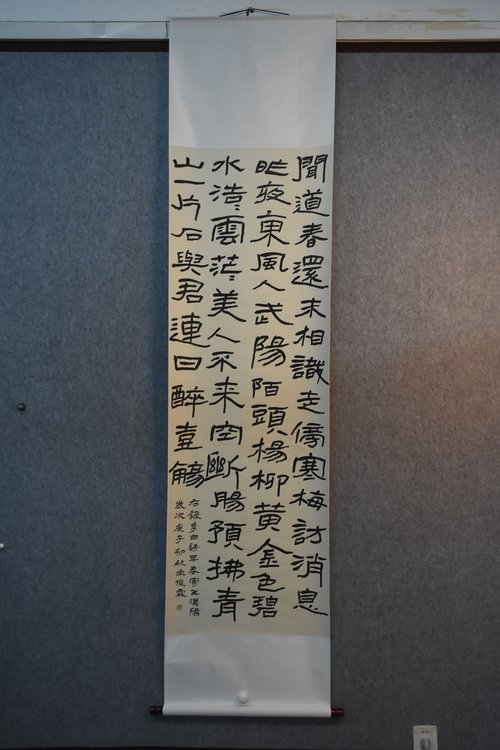 聞道春還未相識走傍寒梅訪消息
昨夜東風入武陽陌頭楊柳黃金色碧
水浩〻雲茫〻美人不来空斷腸預拂青
山一片石與君連日醉壺觴
右錄李白詩早春寄王漢陽
歲次庚子初秋